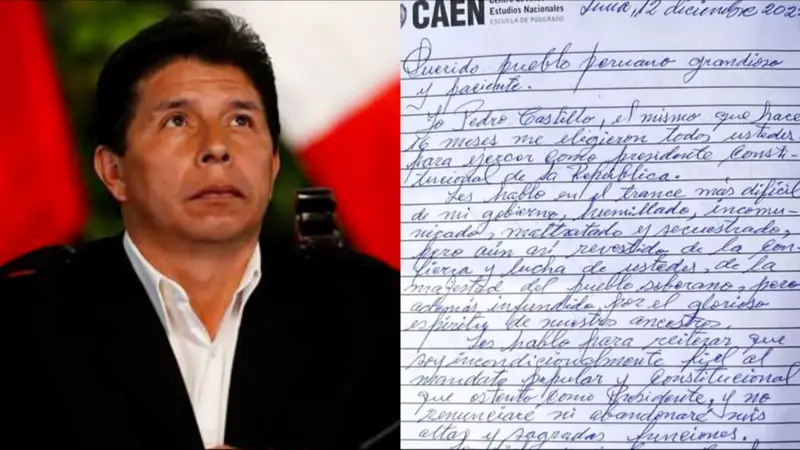 CAEN
Estudios Nacionales
ESCUELA DE POSGRADO
Lima, 12 diciembre 202
Querido pueblo peruano grandioso
y paciente.
Yo Pedro Castillo, el mismo que hace
16 meses me eligieron todos ustedes
para ejercer como presidente Consti-
tucional de la República.
Les hablo en el trance más difícil
de mi gobierno, humillado, incomu-
nicado, maltratado y secuestrado,
pero aún así revestido de la con-
fianza y lucha de ustedes, de la
majestad del pueblo soberano, pero
además infundido por el glorioso
espíritu de nuestros ancestros.
Les hablo para reiterar que
soy incondicionalmente fiel al
mandato popular y Constitucional
que ostento como Presidente, y no
renunciaré ni abandonaré mis
altas y sagradas funciones.